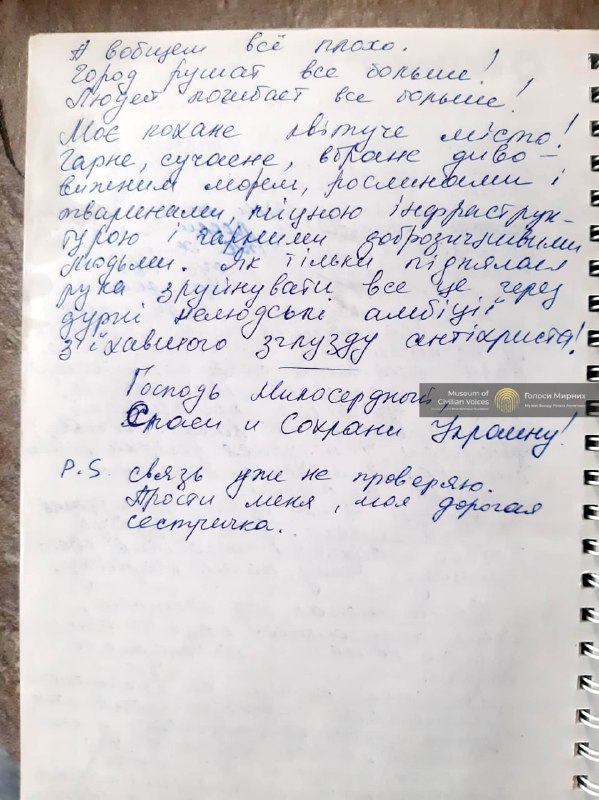 А вобщем всё плохо.
Город рушат все больше!
Людей погибает все больше!
Моє кохане квітуче місто!
Гарне, сучасне, вбране диво-
вижним морем, рослинами і
тваринами, міцною інфраструк-
турою і гарними доброзичливими
людьми. Як тільки піднялася
рука зруйнувати все це через
дурні нелюдські амбіції
з'їхавшого з глузду антіхриста!
Господь Милосердный,
Спаси и Сохрани Украину!
P.S. связь уже не проверяю.
Прости меня, моя дорогая
сестричка.
Museum of
Civilian Voices
Голоси Мирних